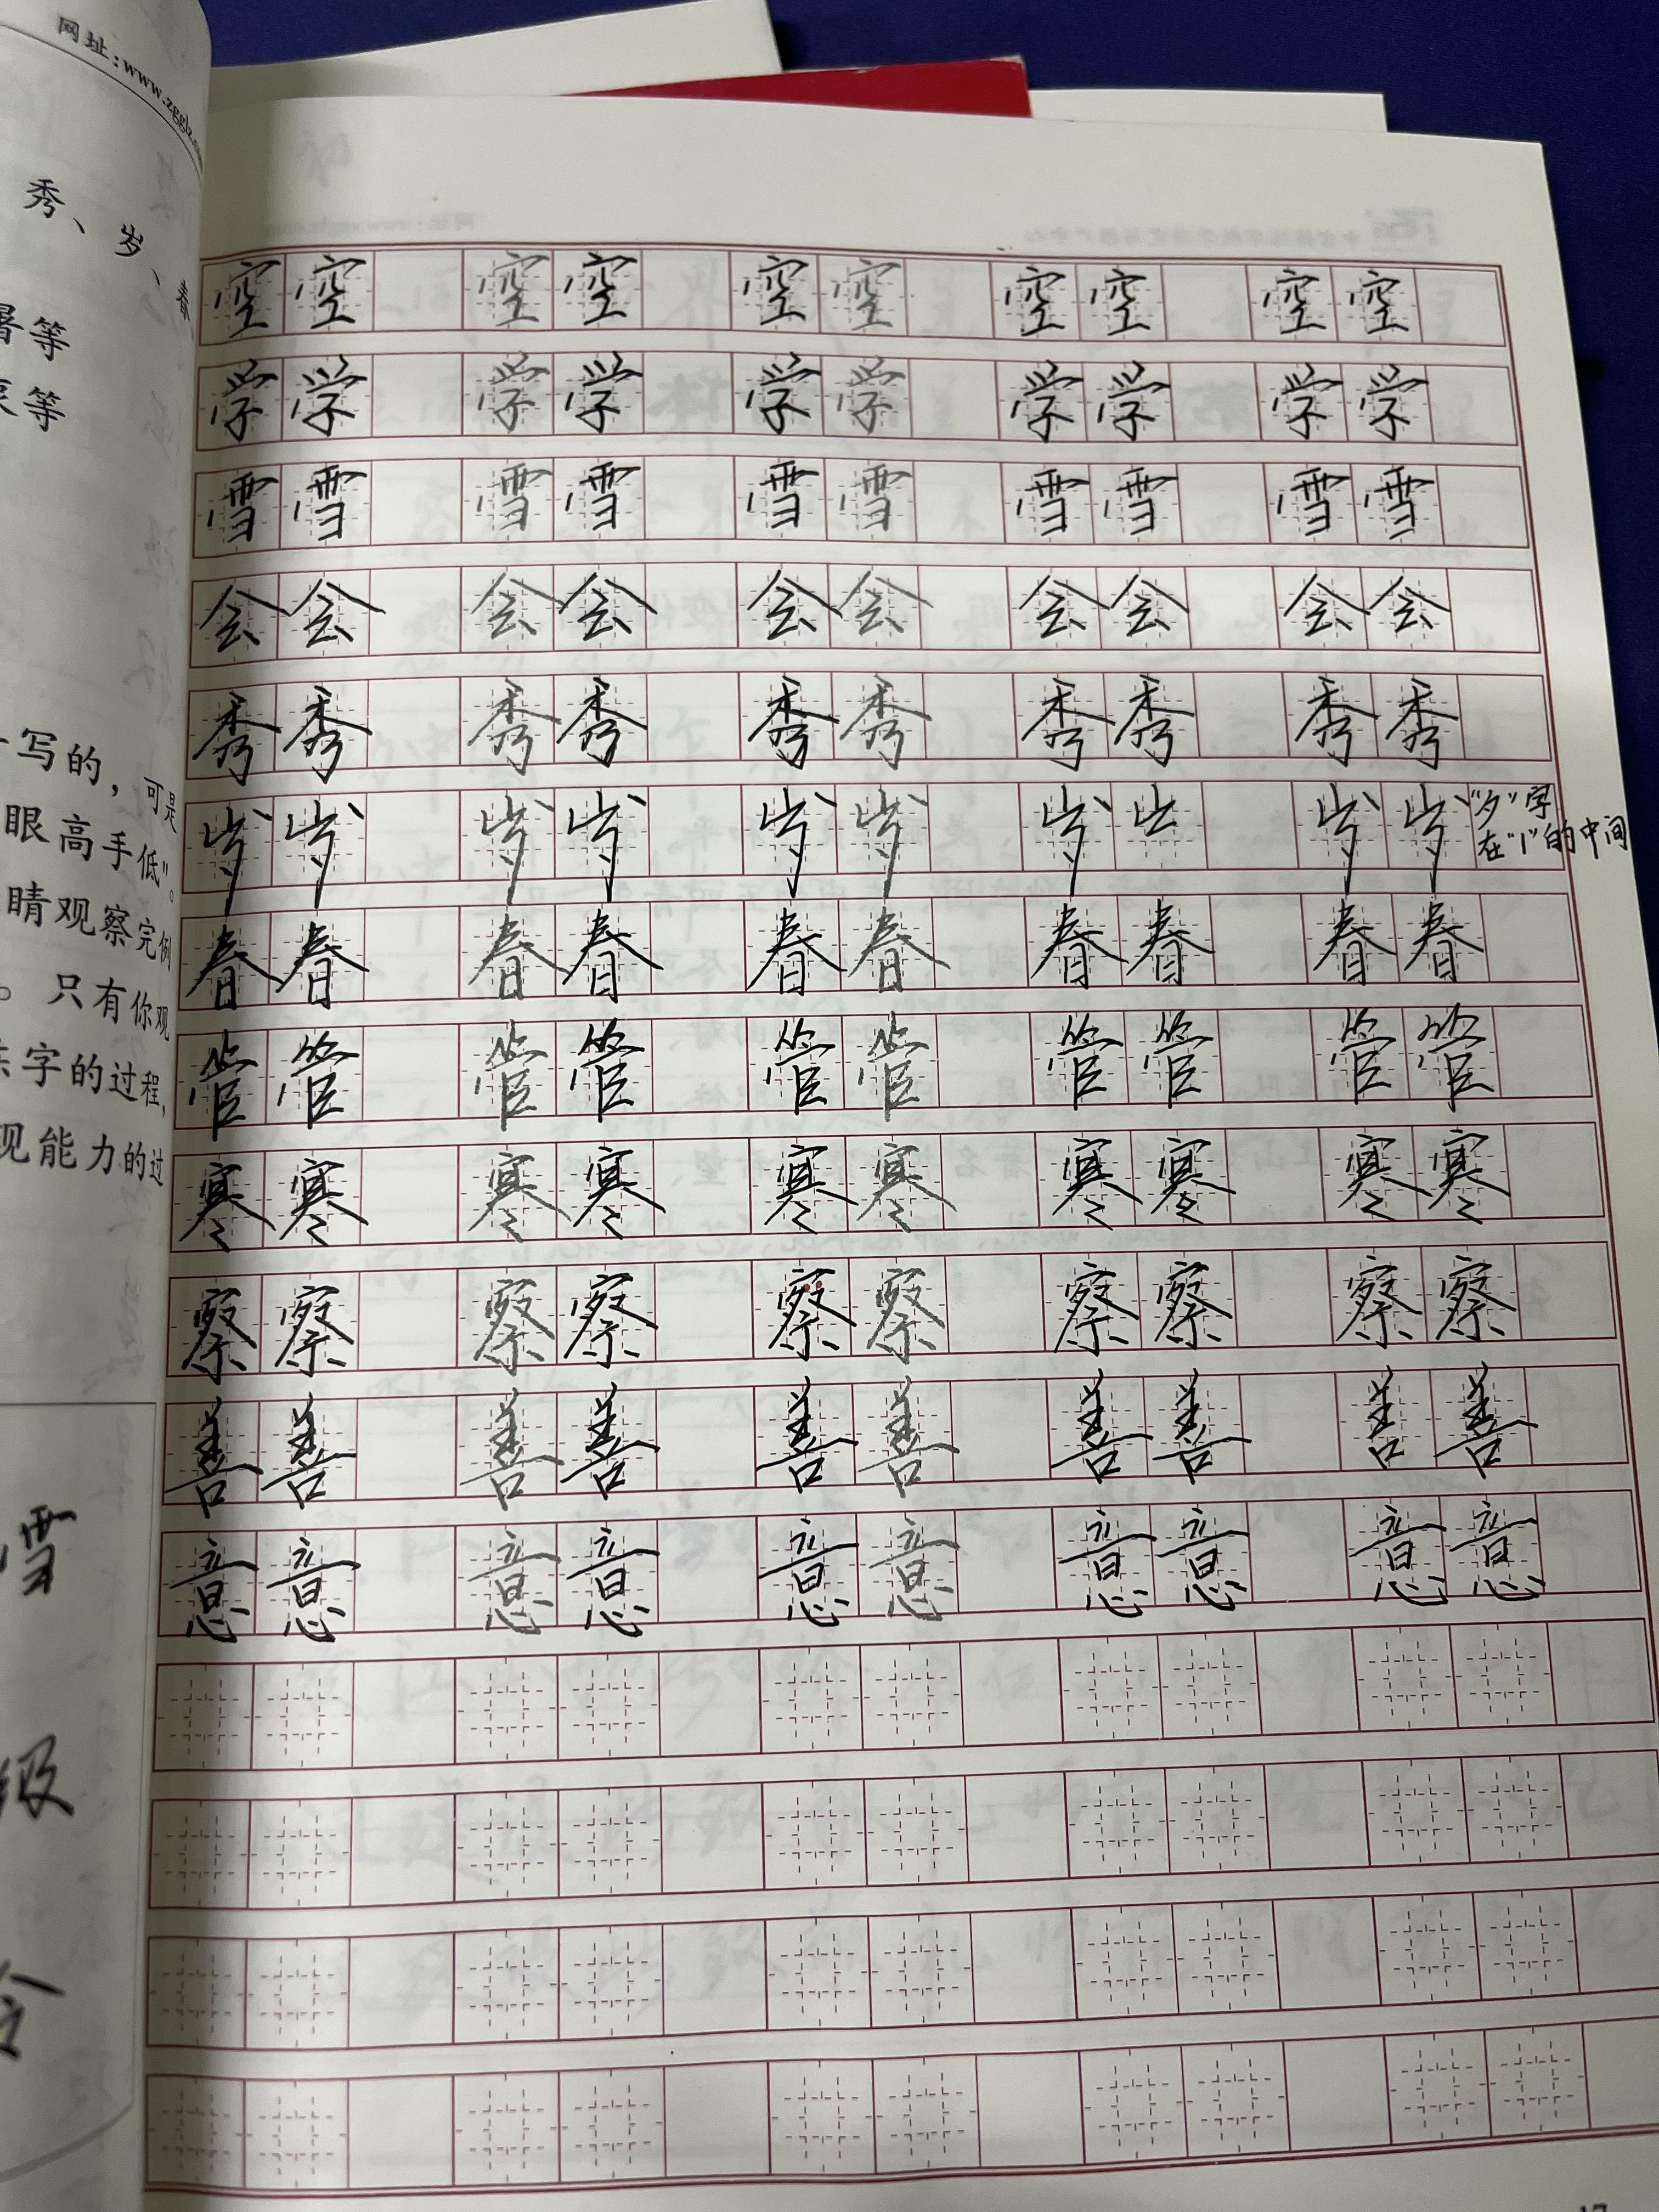 网址：www.zgglz.com
秀、岁、春、
暑等
泵等
写的，可是
眼高手低”。
睛观察完例
。只有你观
练字的过程，
现能力的过
雪
级
会
空空空空空空空空空空
学学学学学学学学学学
雪雪雪雪雪雪雪雪雪雪
会会会会会会会会会会
秀秀秀秀秀秀秀秀秀秀
岁岁岁岁岁岁岁山岁岁 “夕”字
在“丨”的中间
春春春春春春春春春春
管管管管管管管管管管
寒寒寒寒寒寒寒寒寒寒
察察察察察察察察察察
善善善善善善善善善善
意意意意意意意意意意